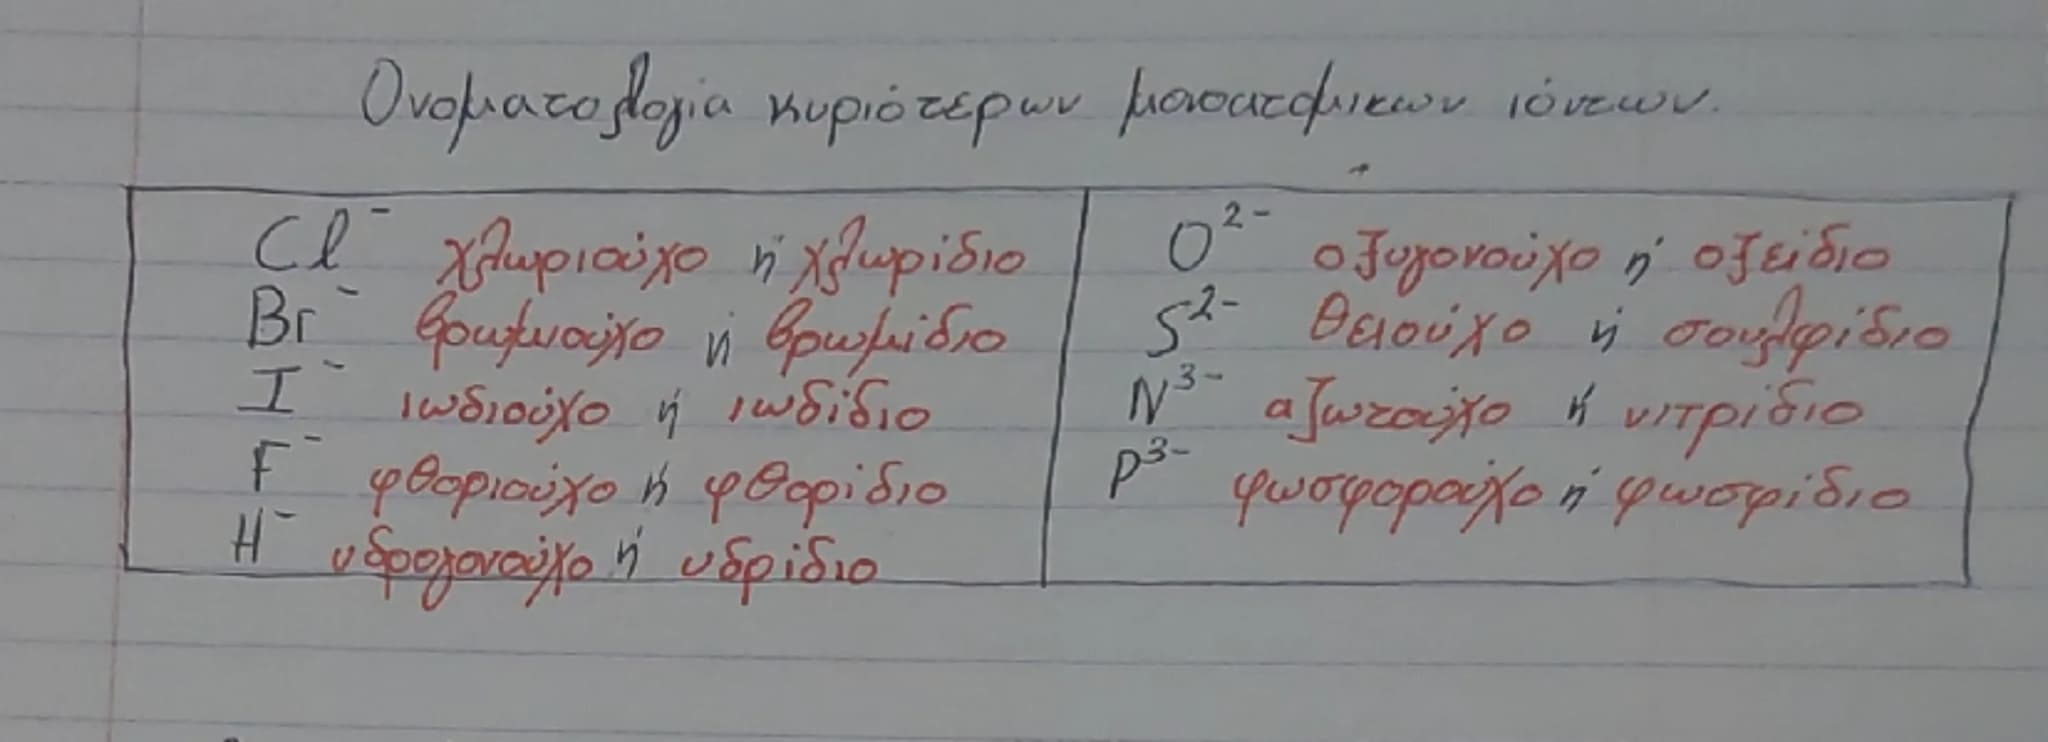 Ονοματολογία κυριότερων μονοατομικων ιόντων.
Cl⁻ χλωριούχο ή χλωρίδιο
Br⁻ βρωμιούχο ή βρωμίδιο
I⁻ ιωδιούχο ή ιωδίδιο
F⁻ φθοριούχο ή φθορίδιο
H⁻ υδρογονούχο ή υδρίδιο
O²⁻ οξυγονούχο ή οξείδιο
S²⁻ θειούχο ή σουλφίδιο
N³⁻ αζωτούχο ή νιτρίδιο
P³⁻ φωσφορούχο ή φωσφίδιο